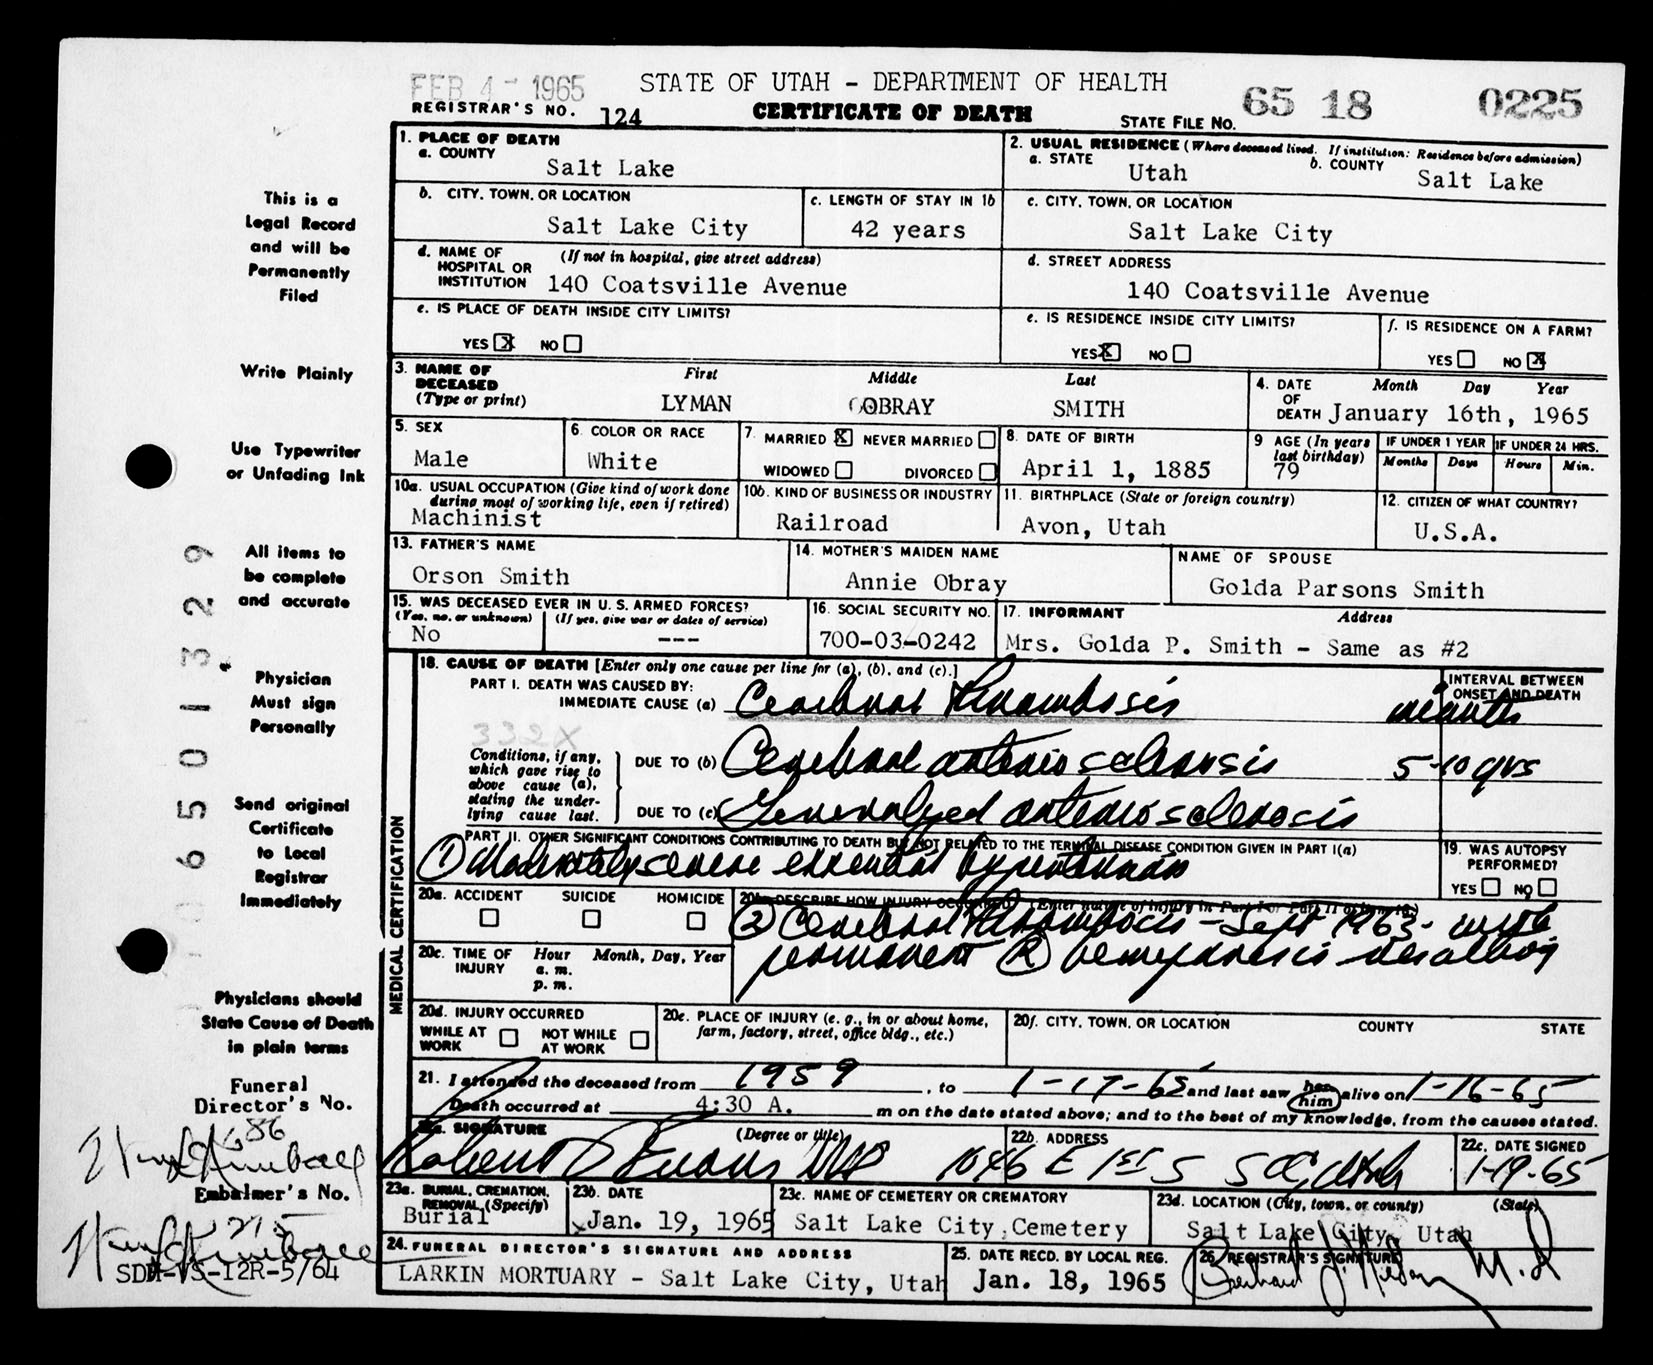 FEB 4 - 1965
STATE OF UTAH - DEPARTMENT OF HEALTH
65 18 0225
REGISTRAR'S NO. 124
CERTIFICATE OF DEATH
STATE FILE NO.
1. PLACE OF DEATH
a. COUNTY
Salt Lake
2. USUAL RESIDENCE (Where deceased lived. If institution: Residence before admission)
a. STATE
Utah
b. COUNTY
Salt Lake
b. CITY, TOWN, OR LOCATION
Salt Lake City
c. LENGTH OF STAY IN 1b
42 years
c. CITY, TOWN, OR LOCATION
Salt Lake City
d. NAME OF HOSPITAL OR INSTITUTION
(If not in hospital, give street address)
140 Coatsville Avenue
d. STREET ADDRESS
140 Coatsville Avenue
e. IS PLACE OF DEATH INSIDE CITY LIMITS?
YES X NO
e. IS RESIDENCE INSIDE CITY LIMITS?
YES X NO
f. IS RESIDENCE ON A FARM?
YES NO X
3. NAME OF DECEASED
(Type or print)
First Middle Last
LYMAN OBRAY SMITH
4. DATE OF DEATH
Month Day Year
January 16th, 1965
5. SEX
Male
6. COLOR OR RACE
White
7. MARRIED X NEVER MARRIED
WIDOWED DIVORCED
8. DATE OF BIRTH
April 1, 1885
9 AGE (In years last birthday)
79
IF UNDER 1 YEAR
Months Days
IF UNDER 24 HRS.
Hours Min.
10a. USUAL OCCUPATION (Give kind of work done during most of working life, even if retired)
Machinist
10b. KIND OF BUSINESS OR INDUSTRY
Railroad
11. BIRTHPLACE (State or foreign country)
Avon, Utah
12. CITIZEN OF WHAT COUNTRY?
U.S.A.
13. FATHER'S NAME
Orson Smith
14. MOTHER'S MAIDEN NAME
Annie Obray
NAME OF SPOUSE
Golda Parsons Smith
15. WAS DECEASED EVER IN U.S. ARMED FORCES?
(Yes, no, or unknown) (If yes, give war or dates of service)
No ---
16. SOCIAL SECURITY NO.
700-03-0242
17. INFORMANT Address
Mrs. Golda P. Smith - Same as #2
MEDICAL CERTIFICATION
18. CAUSE OF DEATH [Enter only one cause per line for (a), (b), and (c).]
PART I. DEATH WAS CAUSED BY:
IMMEDIATE CAUSE (a) Cerebral Thrombosis
INTERVAL BETWEEN ONSET AND DEATH
332X
Conditions, if any, which gave rise to above cause (a), stating the underlying cause last.
DUE TO (b) Cerebral arterio sclerosis
5-10 yrs
DUE TO (c) Generalized arterio sclerosis
PART II. OTHER SIGNIFICANT CONDITIONS CONTRIBUTING TO DEATH BUT NOT RELATED TO THE TERMINAL DISEASE CONDITION GIVEN IN PART I(a)
① Moderately severe essential hypertension
19. WAS AUTOPSY PERFORMED?
YES NO
20a. ACCIDENT SUICIDE HOMICIDE
20b. DESCRIBE HOW INJURY OCCURRED (Enter nature of injury in Part I or Part II of item 18.)
② Cerebral Thrombosis - Sept 1963 - with
permanent Ⓡ hemiparesis
20c. TIME OF INJURY
Hour Month, Day, Year
a. m.
p. m.
20d. INJURY OCCURRED
WHILE AT WORK
NOT WHILE AT WORK
20e. PLACE OF INJURY (e. g., in or about home, farm, factory, street, office bldg., etc.)
20f. CITY, TOWN, OR LOCATION COUNTY STATE
21. I attended the deceased from 1959, to 1-17-65 and last saw her him alive on 1-16-65
Death occurred at 4:30 A. m on the date stated above; and to the best of my knowledge, from the causes stated.
22a. SIGNATURE (Degree or title)
Robert D Evans MD
22b. ADDRESS
1046 E 1st S SLC, Utah
22c. DATE SIGNED
1-19-65
23a. BURIAL, CREMATION, REMOVAL (Specify)
Burial
23b. DATE
Jan. 19, 1965
23c. NAME OF CEMETERY OR CREMATORY
Salt Lake City Cemetery
23d. LOCATION (City, town, or county) (State)
Salt Lake City, Utah
24. FUNERAL DIRECTOR'S SIGNATURE AND ADDRESS
LARKIN MORTUARY - Salt Lake City, Utah
25. DATE RECD. BY LOCAL REG.
Jan. 18, 1965
26. REGISTRAR'S SIGNATURE
M.D
This is a
Legal Record
and will be
Permanently
Filed
Write Plainly
Use Typewriter
or Unfading Ink
All items to
be complete
and accurate
Physician
Must sign
Personally
Send original
Certificate
to Local
Registrar
Immediately
Physicians should
State Cause of Death
in plain terms
Funeral
Director's No.
686
Embalmer's No.
275
SDH-VS-12R-5/64
0650 1329